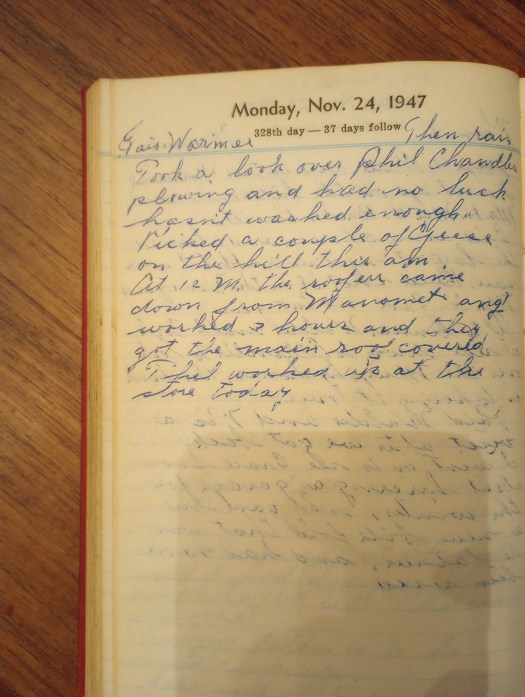 Monday, Nov. 24, 1947
328th day — 37 days follow
Fair. Warmer Then rain
Took a look over Phil Chandler
plowing and had no luck
hasn't washed enough.
Picked a couple of Geese
on the hill this am
At 12 M. the roofers came
down from Manomet and
worked 3 hours and they
got the main roof covered
worked at the
store today